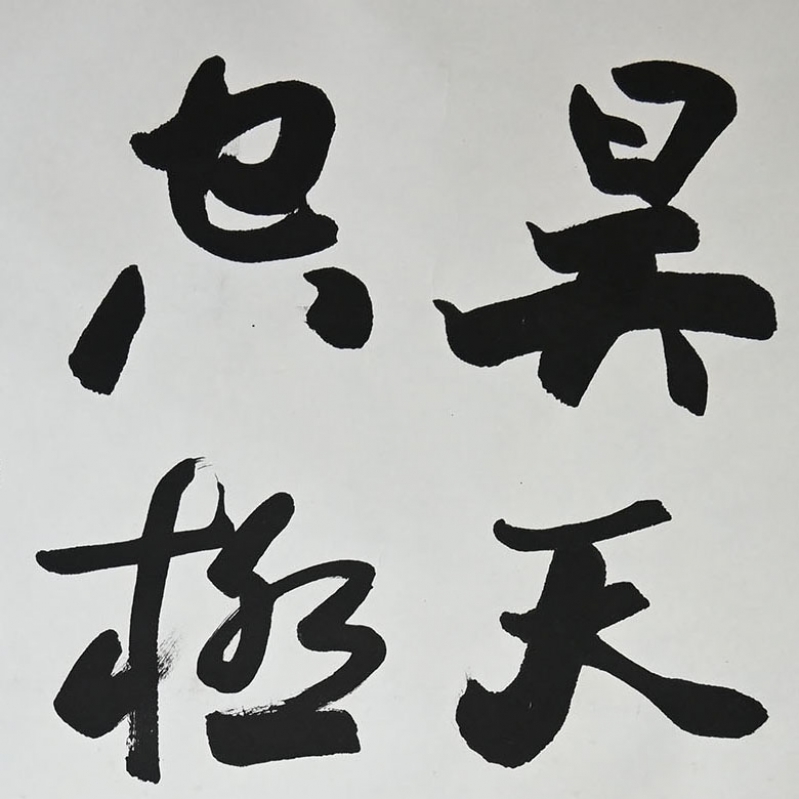 昊天
罔極